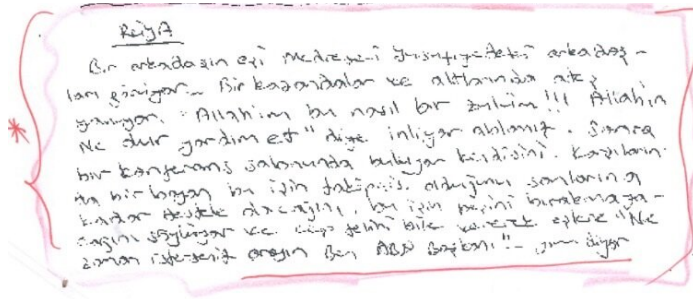 Rüya
Bir arkadaşın eşi Medrese-i Yusufiyedeki arkadaş-
ları görüyor. Bir kazandalar ve altlarında ateş
yanıyor. "Allahım bu nasıl bir zulüm!!! Allahım
Ne olur yardım et" diye inliyor ablamız. Sonra
bir konferans salonunda buluyor kendisini. Karşıların-
da bir bayan bu işin takipçisi olduğunu sonlarına
kadar destek olacağını, bu işin peşini bırakmaya-
cağını söylüyor ve cep telini bile vererek eşlere "Ne
zaman isterseniz arayın Ben ABD Başkanı"- diyor